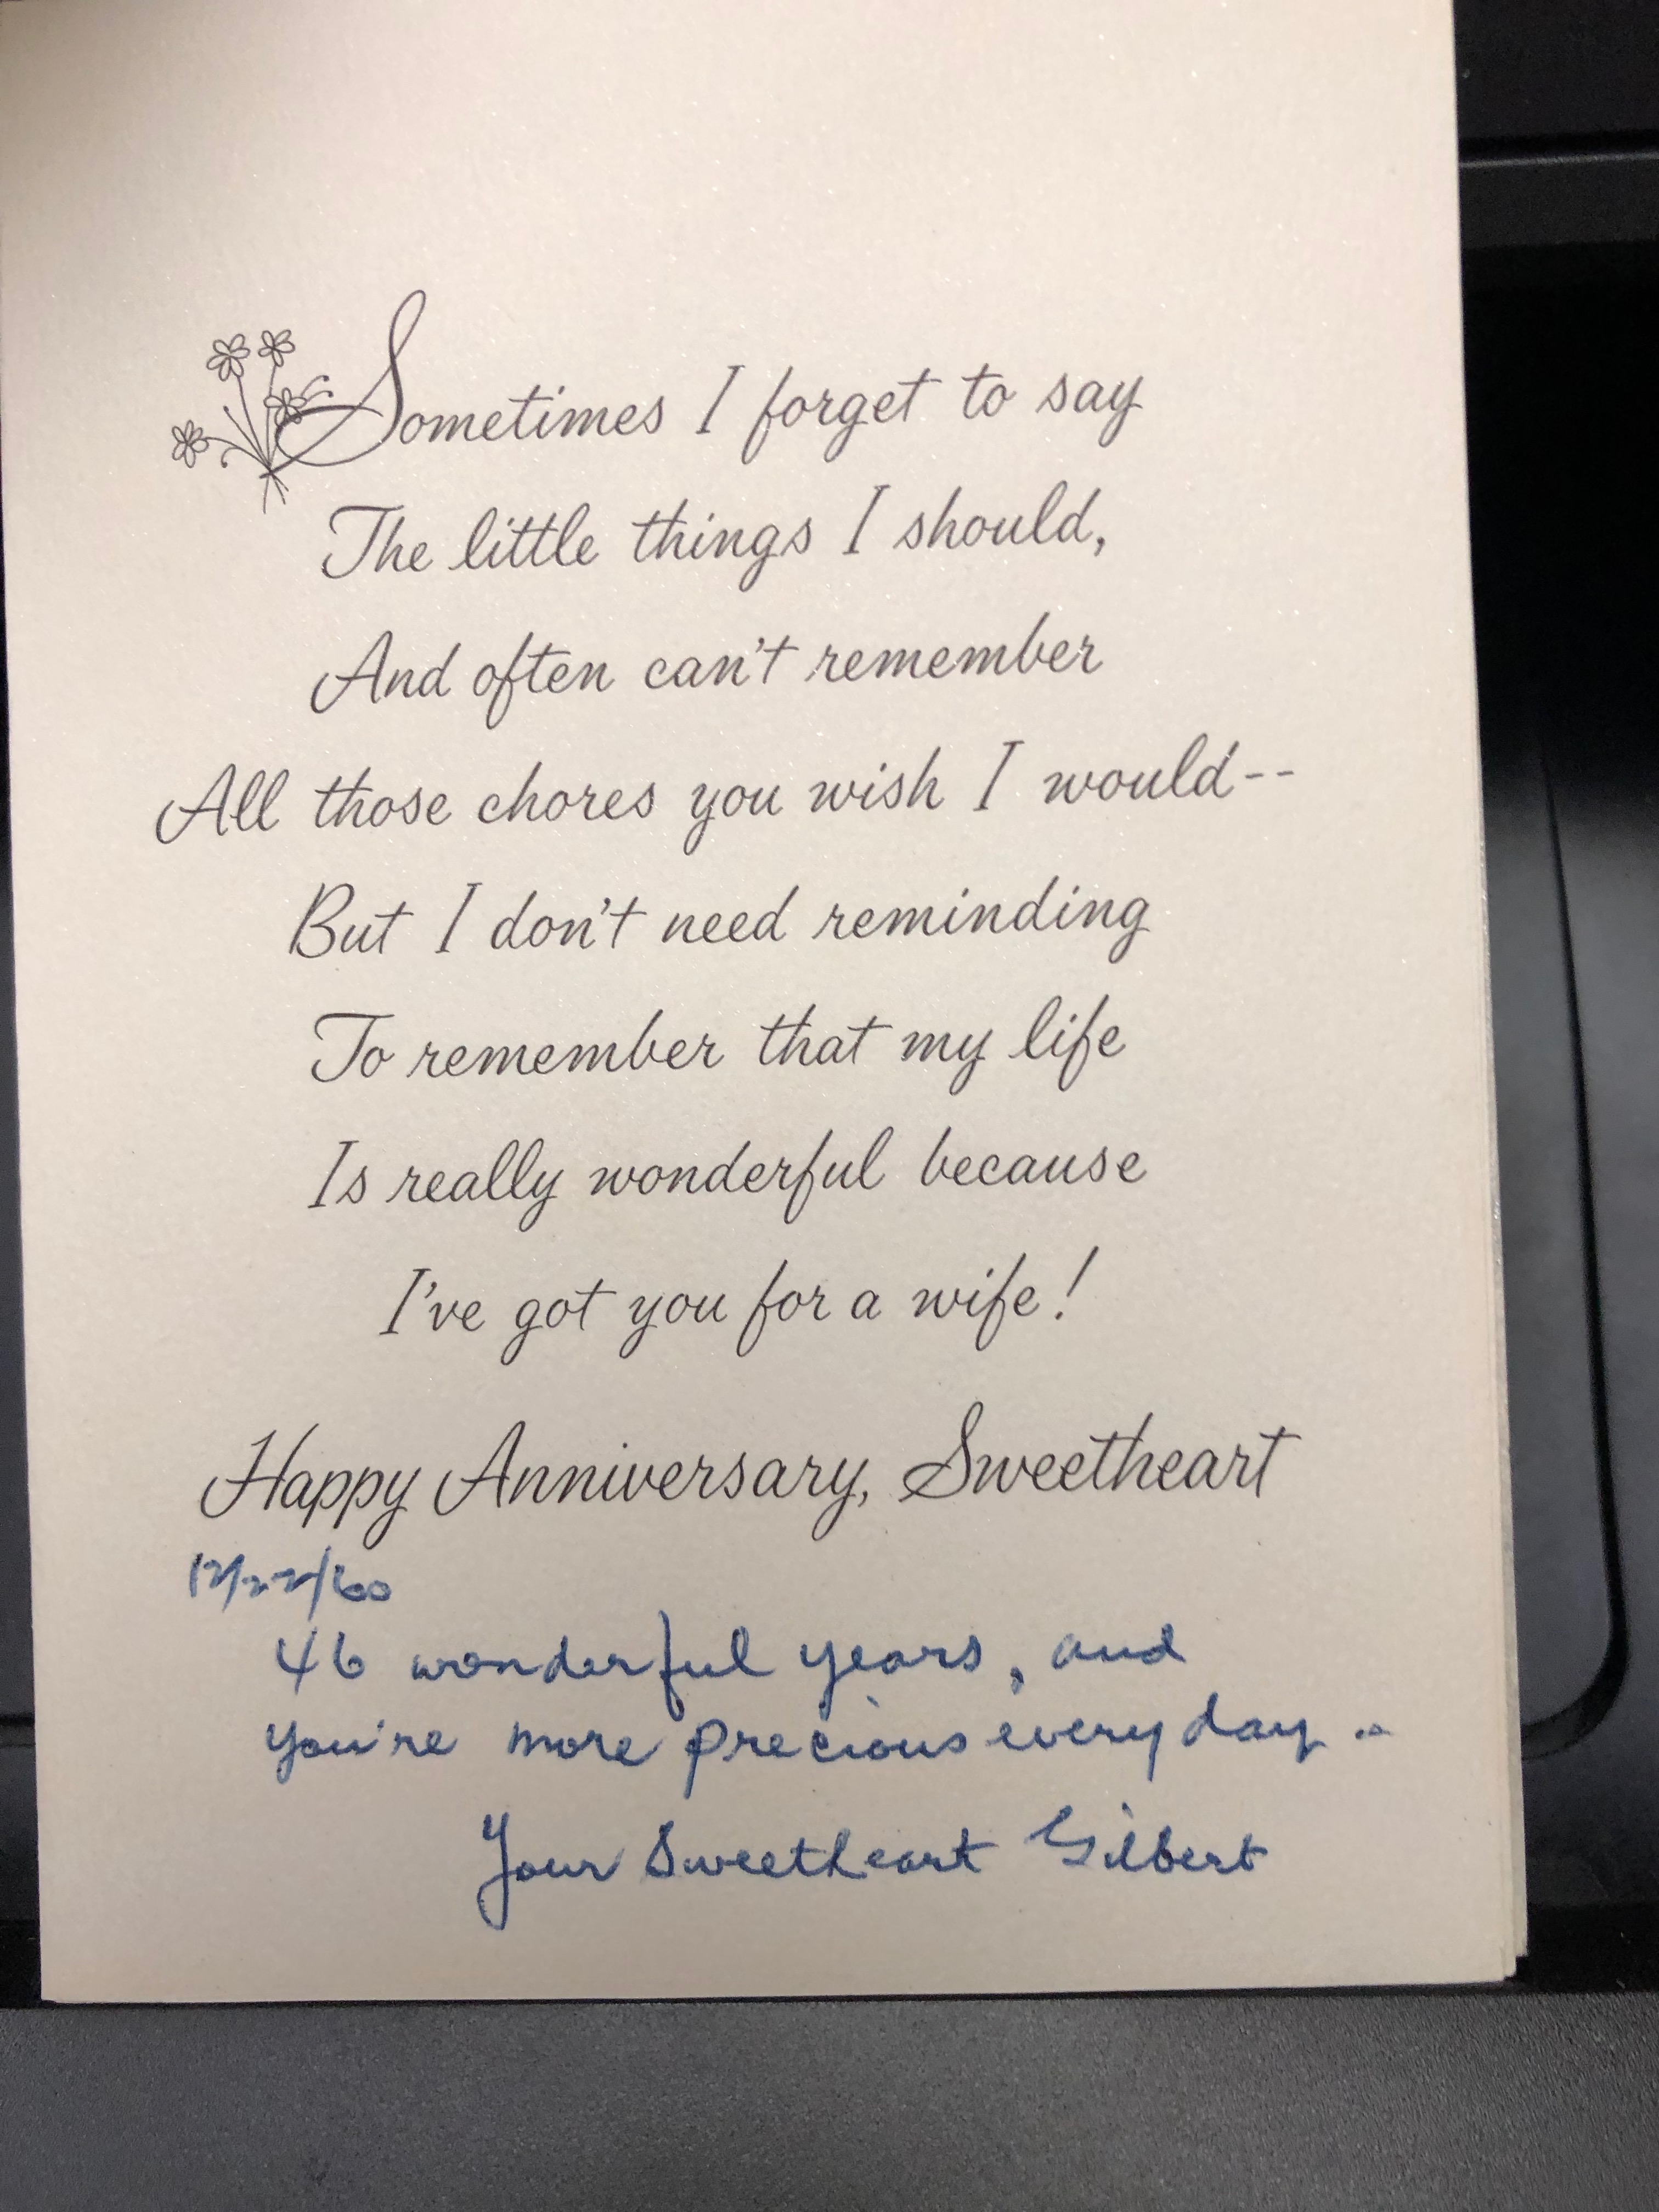 Sometimes I forget to say
The little things I should,
And often can't remember
All those chores you wish I would--
But I don't need reminding
To remember that my life
Is really wonderful because
I've got you for a wife!
Happy Anniversary, Sweetheart
12/22/60
46 wonderful years, and
you're more precious every day..
Your Sweetheart Gilbert